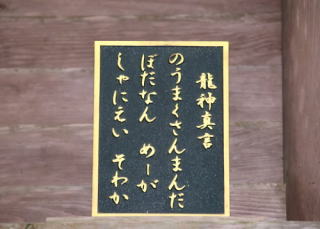 龍神真言
のうまくさんまんだ
ぼだなん　めーが
しゃにえい　そわか